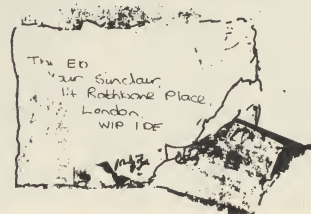 The Ed
Sinclair,
14 Rathbone Place,
London
W1P 1DE